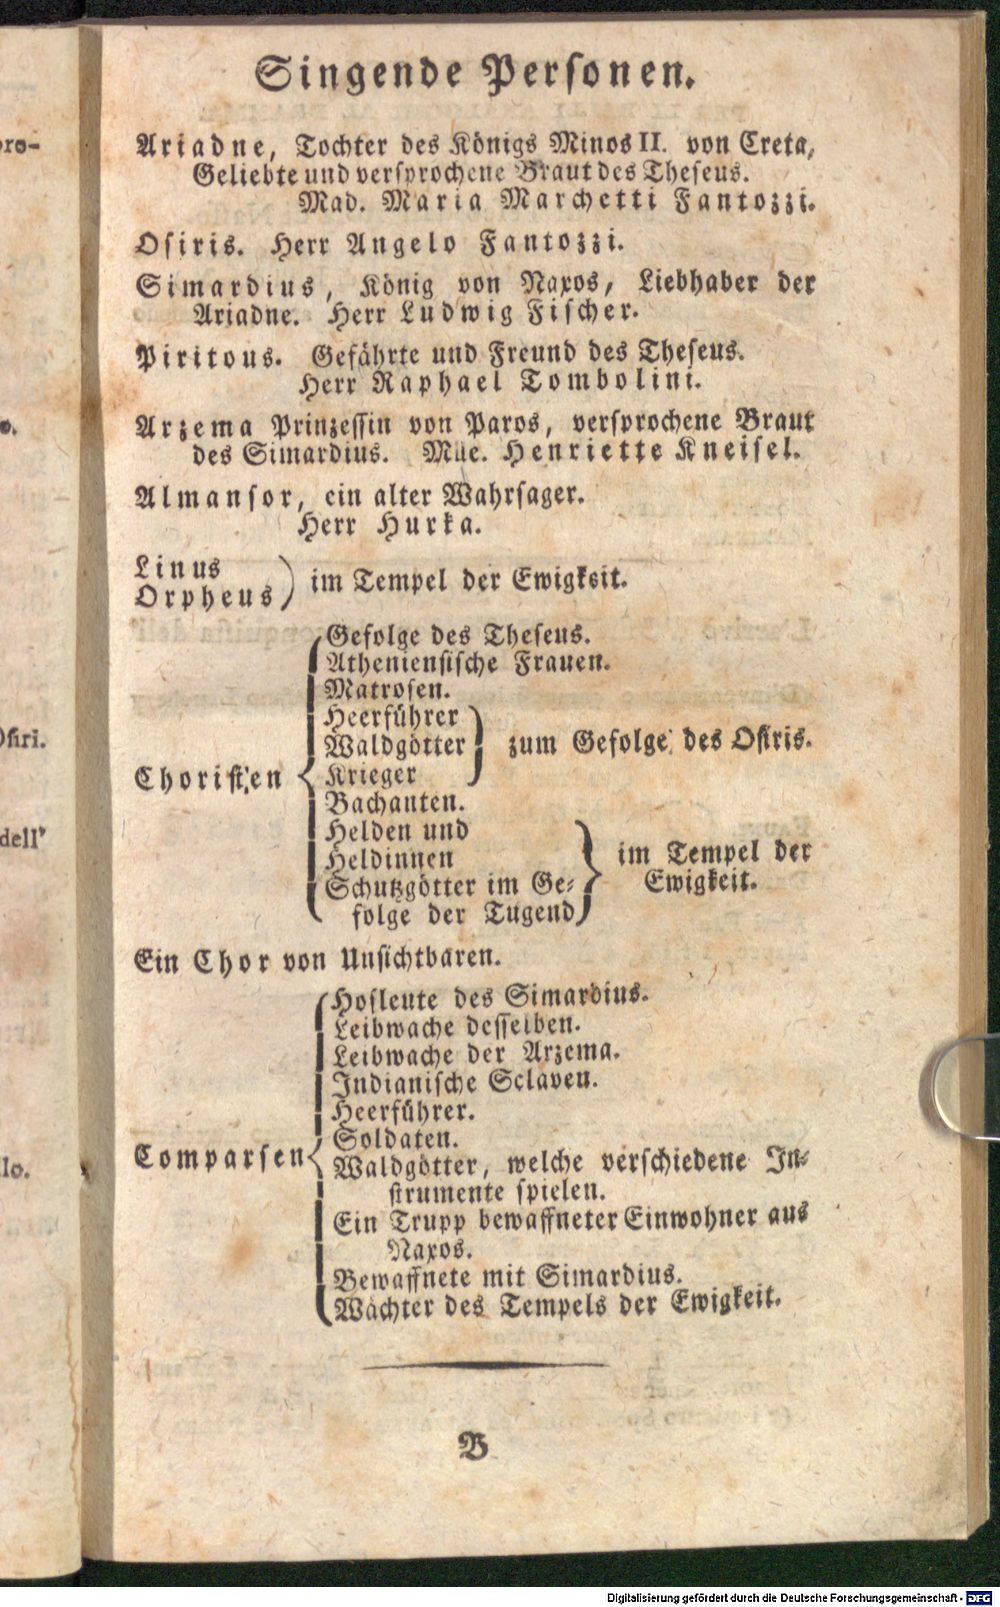 Singende Personen.
Ariadne, Tochter des Königs Minos II. von Creta,
Geliebte und versprochene Braut des Theseus.
Mad. Maria Marchetti Fantozzi.
Osiris. Herr Angelo Fantozzi.
Simardius, König von Naxos, Liebhaber der
Ariadne. Herr Ludwig Fischer.
Piritous. Gefährte und Freund des Theseus.
Herr Raphael Tombolini.
Arzema Prinzessin von Paros, versprochene Braut
des Simardius. Mlle. Henriette Kneisel.
Almansor, ein alter Wahrsager.
Herr Hurka.
Linus
Orpheus) im Tempel der Ewigkeit.
Gefolge des Theseus.
Atheniensische Frauen.
Matrosen.
Heerführer
Waldgötter } zum Gefolge des Osiris.
Choristen { Krieger
Bachanten.
Helden und
Heldinnen } im Tempel der
Schutzgötter im Ge- Ewigkeit.
folge der Tugend
Ein Chor von Unsichtbaren.
Hofleute des Simardius.
Leibwache desselben.
Leibwache der Arzema.
Indianische Sclaven.
Heerführer.
Soldaten.
Comparsen { Waldgötter, welche verschiedene In-
strumente spielen.
Ein Trupp bewaffneter Einwohner aus
Naxos.
Bewaffnete mit Simardius.
Wächter des Tempels der Ewigkeit.
B
Digitalisierung gefördert durch die Deutsche Forschungsgemeinschaft - DFG